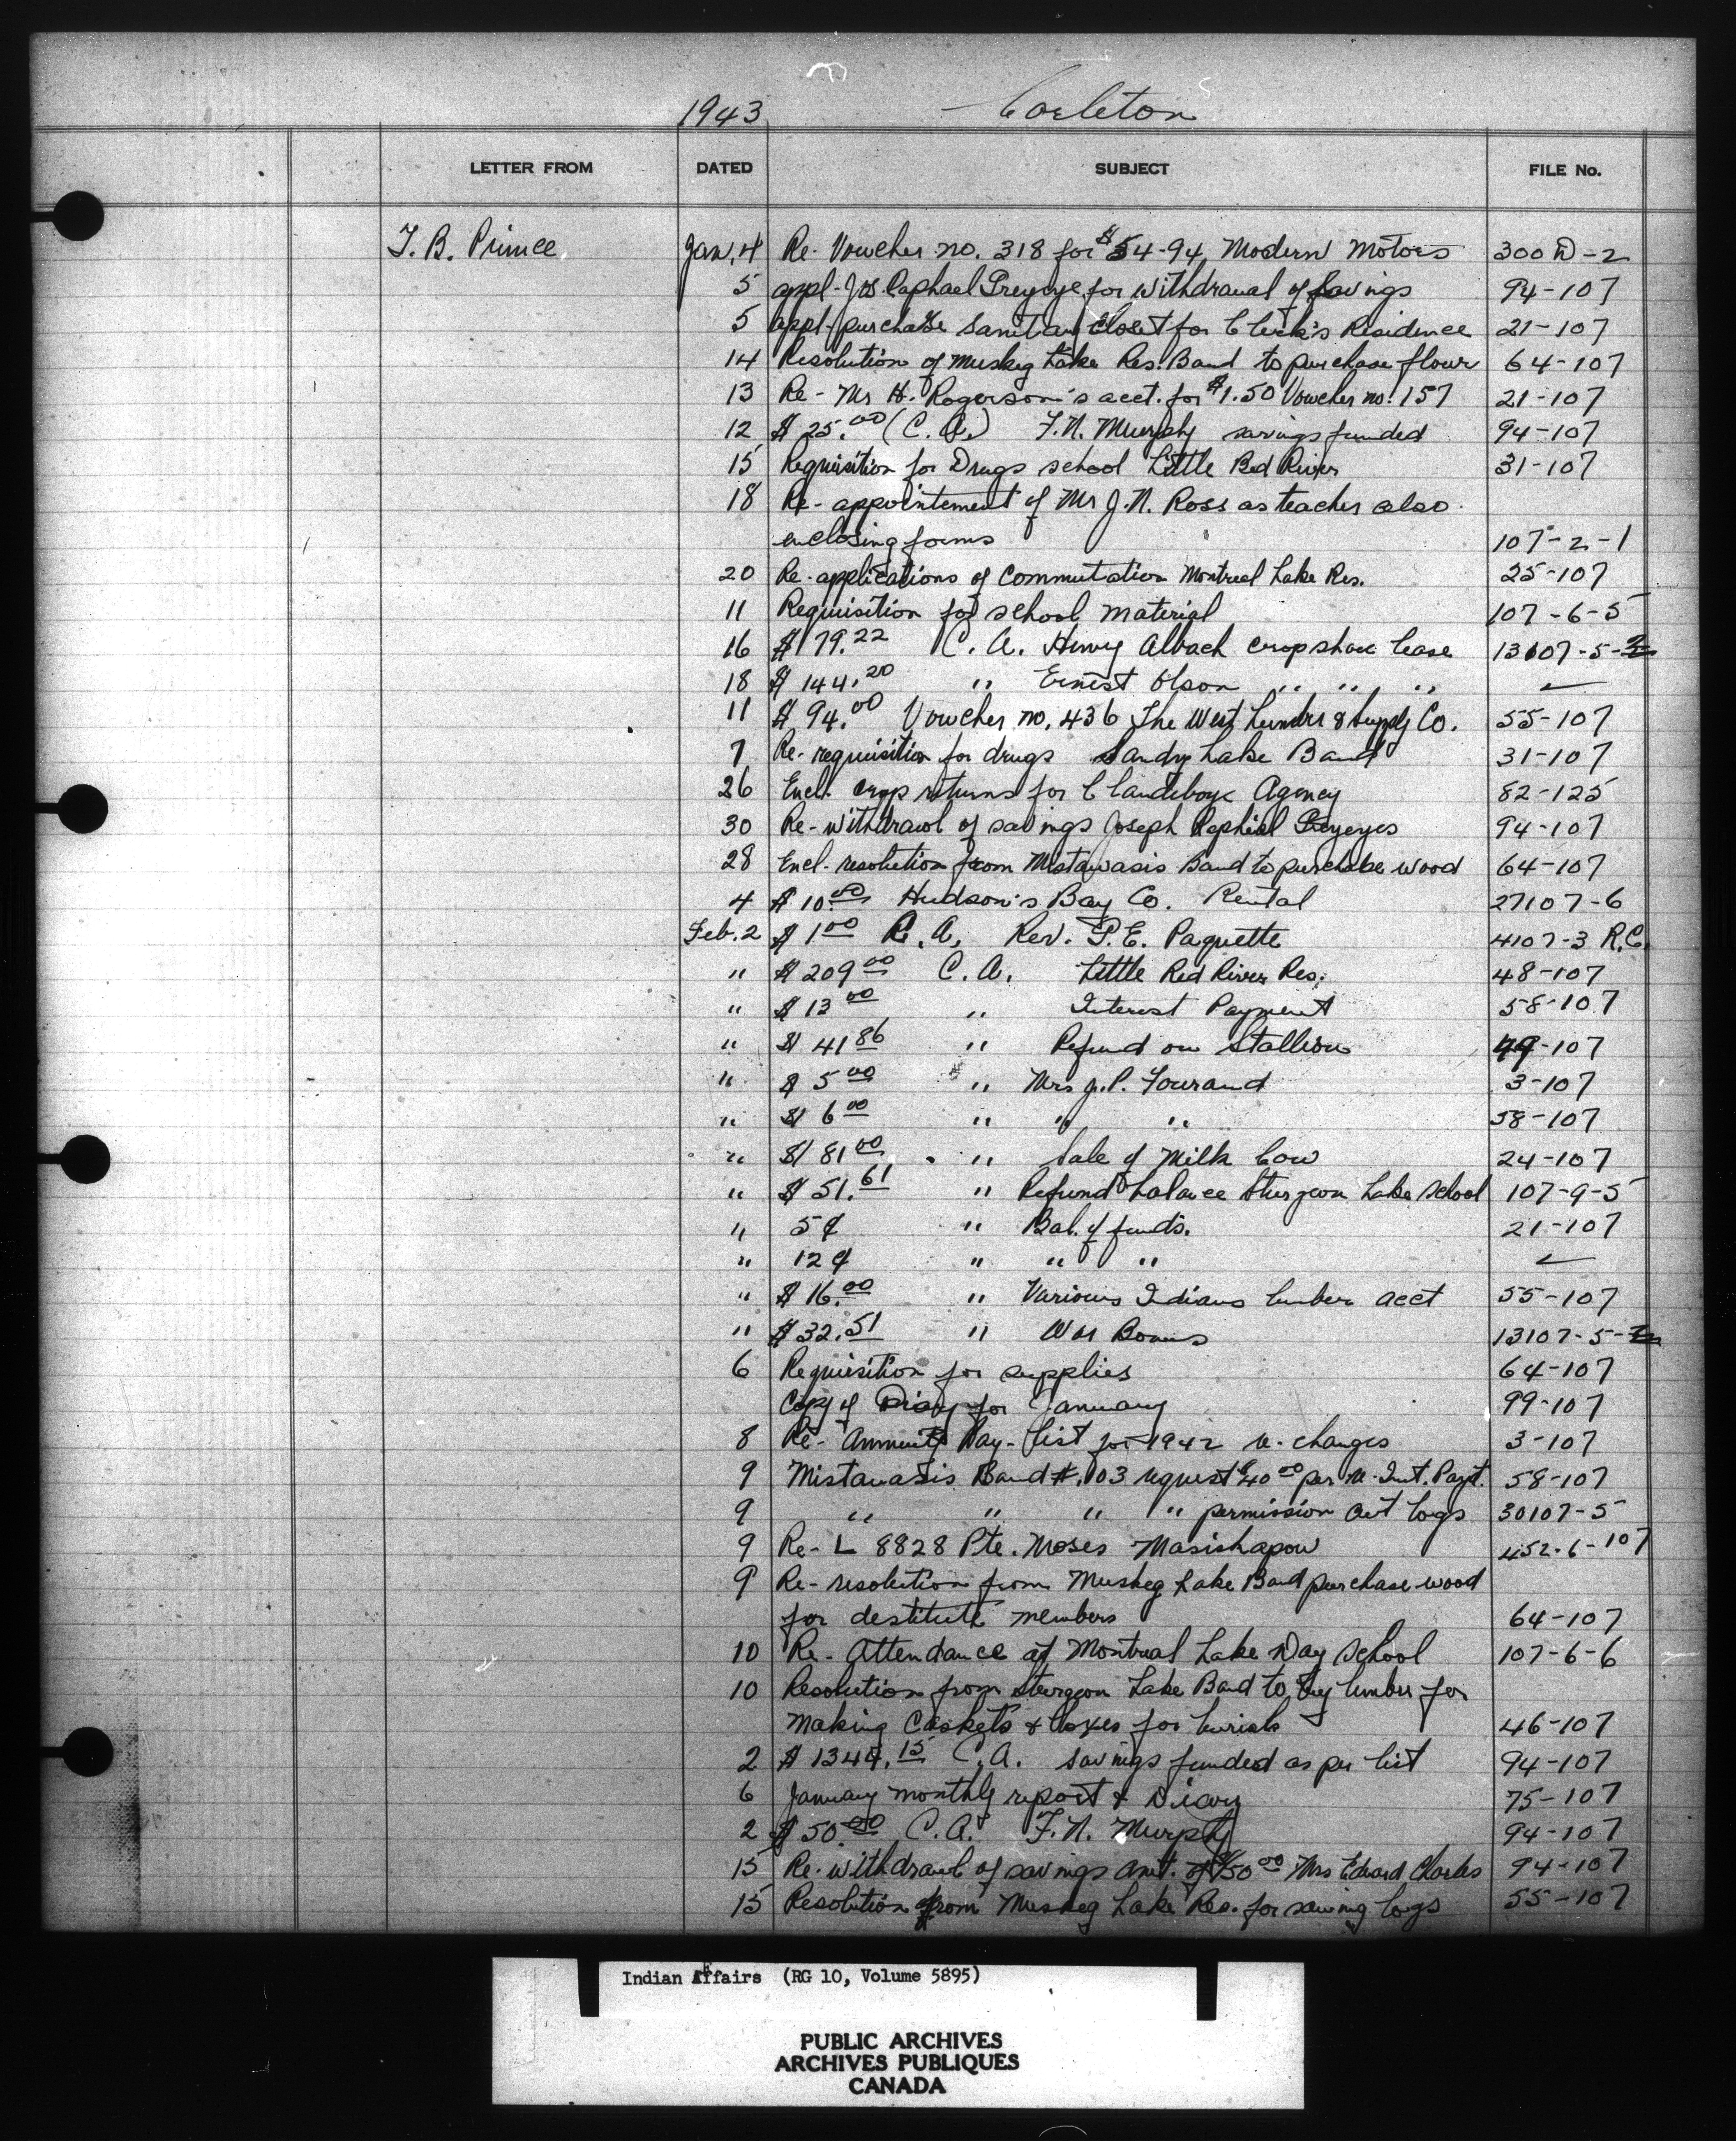 1943 Carleton
LETTER FROM DATED SUBJECT FILE No.
T. B. Prince Jan. 4 Re- Voucher no. 318 for $54-94, Modern Motors 300 D-2
5 appl- Jos Raphael Greyeye for withdrawal of savings 94-107
5 appl- purchase Sanitary Closet for Clerk's Residence 21-107
14 Resolution of Muskeg Lake Res. Band to purchase flour 64-107
13 Re- Mr H. Rogerson's acct. for $1.50 Voucher no. 157 21-107
12 $25.00 (C.A.) F.N. Murphy savings funded 94-107
15 Requisition for Drugs school Little Red River 31-107
18 Re- appointement of Mr J.N. Ross as teacher also
enclosing forms 107-2-1
20 Re- applications of Commutation Montreal Lake Res. 25-107
11 Requisition for school material 107-6-5
16 $179.22 C.A. Henry Albach crop share lease 13107-5-2
18 $144.20 " Ernest Olson " " "
11 $94.00 Voucher no. 436 The West Lumber & Supply Co. 55-107
7 Re- requisition for drugs Sandy Lake Band 31-107
26 Encl. crop returns for Clandeboye Agency 82-125
30 Re- withdrawl of savings Joseph Raphial Greyeyes 94-107
28 Encl. resolution from Mistawasis Band to purchase wood 64-107
4 $10.00 Hudson's Bay Co. Rental 27107-6
Feb. 2 $1 00 R.A. Rev. P.E. Paquette 4107-3 R.C.
" $209 00 C.A. Little Red River Res. 48-107
" $13 00 " Interest Payment 58-107
" $41 86 " Refund on Stallion 49-107
" $5 00 " Mrs J.P. Tourand 3-107
" $6 00 " " " 58-107
" $81 00 " Sale of Milk Cow 24-107
" $51.61 " Refund balance Sturgeon Lake School 107-9-5
" 5¢ " Bal. of funds. 21-107
" 12¢ " " "
" $16.00 " Various Indians lumber acct 55-107
" $32.51 " War Bonus 13107-5-2
6 Requisition for supplies 64-107
Copy of Diary for January 99-107
8 Re- Annuity Pay-list for 1942 re- changes 3-107
9 Mistawasis Band #103 request $40 00 per re- Int. Payt. 58-107
9 " " " " permission cut logs 30107-5
9 Re- L 8828 Pte. Moses Masishapow 452-6-107
9 Re- resolution from Muskeg Lake Band purchase wood
for destitute members 64-107
10 Re- Attendance at Montreal Lake Day School 107-6-6
10 Resolution from Sturgeon Lake Band to buy lumber for
making Caskets & boxes for burials 46-107
2 $1344.15 C.A. savings funded as per list 94-107
6 January monthly report & Diary 75-107
2 $50.00 C.A. F.N. Murphy 94-107
15 Re- withdrawl of savings amt. of $50 00 Mrs Edward Charles 94-107
15 Resolution from Muskeg Lake Res. for sawing logs 55-107
Indian Affairs (RG 10, Volume 5895)
PUBLIC ARCHIVES
ARCHIVES PUBLIQUES
CANADA